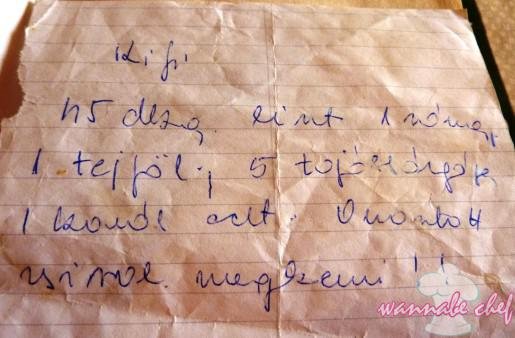 Kifi
45 dkg. lint 1 rámа,
1 tejföl, 5 tojássárgája,
1 kanál ect. Onontott
zsirral megkenni!!
wannabe chef